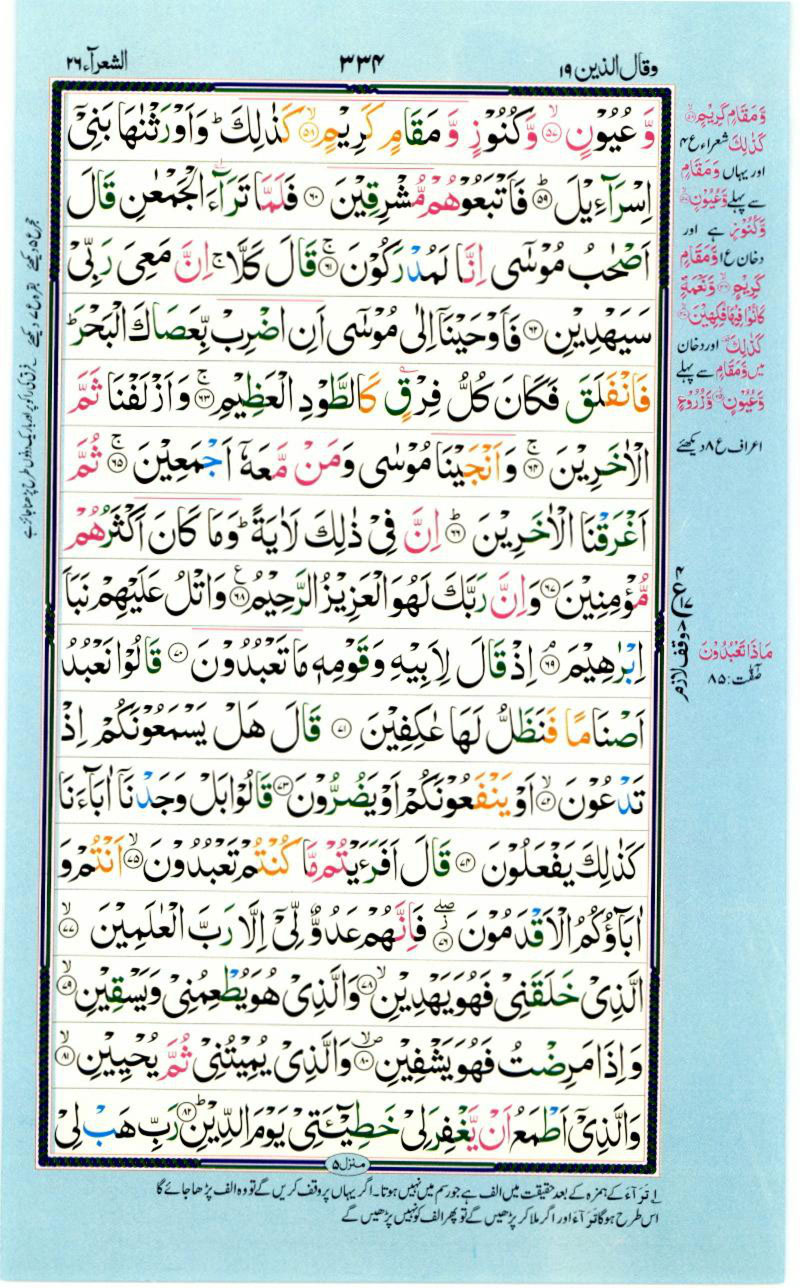 وقال الذین ۱۹
۳۳۴
الشعرآء ۲۶
وَّعُیُوْنٍ ۝۵۷ۙ وَّكُنُوْزٍ وَّمَقَامٍ كَرِیْمٍ ۝۵۸ۙ كَذٰلِكَ ؕ وَاَوْرَثْنٰهَا بَنِیْۤ
اِسْرَآءِیْلَ ۝۵۹ؕ فَاَتْبَعُوْهُمْ مُّشْرِقِیْنَ ۝۶۰ فَلَمَّا تَرَآءَ الْجَمْعٰنِ قَالَ
اَصْحٰبُ مُوْسٰۤی اِنَّا لَمُدْرَكُوْنَ ۝۶۱ۚ قَالَ كَلَّا ۚ اِنَّ مَعِیَ رَبِّیْ
سَیَهْدِیْنِ ۝۶۲ فَاَوْحَیْنَاۤ اِلٰی مُوْسٰۤی اَنِ اضْرِبْ بِّعَصَاكَ الْبَحْرَ ؕ
فَانْفَلَقَ فَكَانَ كُلُّ فِرْقٍ كَالطَّوْدِ الْعَظِیْمِ ۝۶۳ۚ وَاَزْلَفْنَا ثَمَّ
الْاٰخَرِیْنَ ۝۶۴ۚ وَاَنْجَیْنَا مُوْسٰی وَمَنْ مَّعَهٗۤ اَجْمَعِیْنَ ۝۶۵ۚ ثُمَّ
اَغْرَقْنَا الْاٰخَرِیْنَ ۝۶۶ؕ اِنَّ فِیْ ذٰلِكَ لَاٰیَةً ؕ وَمَا كَانَ اَكْثَرُهُمْ
مُّؤْمِنِیْنَ ۝۶۷ وَاِنَّ رَبَّكَ لَهُوَ الْعَزِیْزُ الرَّحِیْمُ ۝۶۸ع وَاتْلُ عَلَیْهِمْ نَبَاَ
اِبْرٰهِیْمَ ۝۶۹ۘ اِذْ قَالَ لِاَبِیْهِ وَقَوْمِهٖ مَا تَعْبُدُوْنَ ۝۷۰ قَالُوْا نَعْبُدُ
اَصْنَامًا فَنَظَلُّ لَهَا عٰكِفِیْنَ ۝۷۱ قَالَ هَلْ یَسْمَعُوْنَكُمْ اِذْ
تَدْعُوْنَ ۝۷۲ۙ اَوْ یَنْفَعُوْنَكُمْ اَوْ یَضُرُّوْنَ ۝۷۳ قَالُوْا بَلْ وَجَدْنَاۤ اٰبَآءَنَا
كَذٰلِكَ یَفْعَلُوْنَ ۝۷۴ قَالَ اَفَرَءَیْتُمْ مَّا كُنْتُمْ تَعْبُدُوْنَ ۝۷۵ۙ اَنْتُمْ وَ
اٰبَآؤُكُمُ الْاَقْدَمُوْنَ ۝۷۶ؗۖ فَاِنَّهُمْ عَدُوٌّ لِّیْۤ اِلَّا رَبَّ الْعٰلَمِیْنَ ۝۷۷ۙ
الَّذِیْ خَلَقَنِیْ فَهُوَ یَهْدِیْنِ ۝۷۸ۙ وَالَّذِیْ هُوَ یُطْعِمُنِیْ وَیَسْقِیْنِ ۝۷۹ۙ
وَاِذَا مَرِضْتُ فَهُوَ یَشْفِیْنِ ۝۸۰ۙ وَالَّذِیْ یُمِیْتُنِیْ ثُمَّ یُحْیِیْنِ ۝۸۱ۙ
وَالَّذِیْۤ اَطْمَعُ اَنْ یَّغْفِرَ لِیْ خَطِیْٓـَٔتِیْ یَوْمَ الدِّیْنِ ۝۸۲ؕ رَبِّ هَبْ لِیْ
منزل ۵
وَمَقَامٍ كَرِیْمٍ
كَذٰلِكَ شعراء ع ۴
اور یہاں وَمَقَامٍ
سے پہلے وَعُیُوْنٍ
وَكُنُوْزٍ ہے اور
دخان ع ۱ وَمَقَامٍ
كَرِیْمٍ وَنَعْمَةٍ
كَانُوْا فِیْهَا فٰكِهِیْنَ
كَذٰلِكَ اور دخان
میں وَمَقَامٍ سے پہلے
وَعُیُوْنٍ وَزُرُوْعٍ
اعراف ع ۸ دیکھئے
وقف لازم
مَاذَا تَعْبُدُوْنَ
صٰٓفّٰت : ۸۵
لے تَرَآءَ کے ہمزہ کے بعد حقیقت میں الف ہے جو رسم میں نہیں ہوتا۔ اگر یہاں پر وقف کریں گے تو وہ الف پڑھا جائے گا
اس طرح ہوگا تَرَآءَا اور اگر ملا کر پڑھیں گے تو پھر الف کو نہیں پڑھیں گے